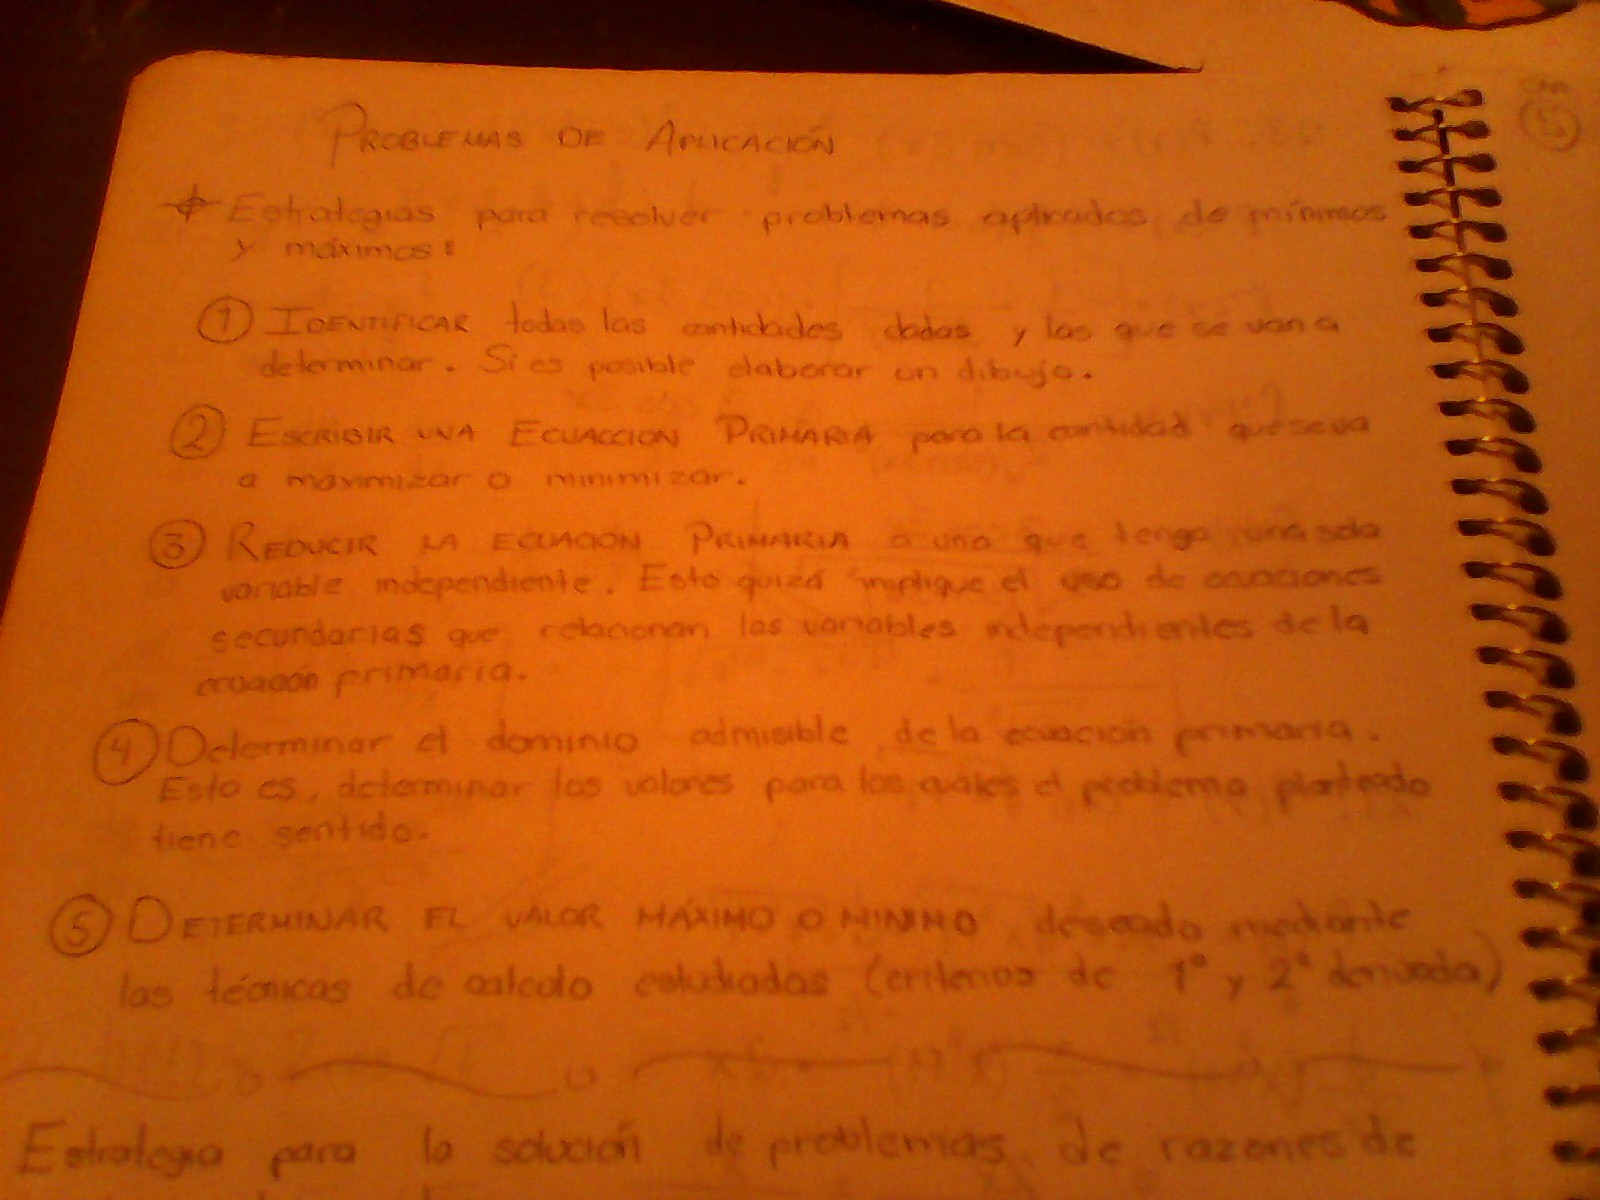 PROBLEMAS DE APLICACIÓN
Estrategias para resolver problemas aplicados de mínimos
y máximos:
1 IDENTIFICAR todas las cantidades dadas y las que se van a
determinar. Si es posible elaborar un dibujo.
2 ESCRIBIR UNA ECUACCION PRIMARIA para la cantidad que se va
a maximizar o minimizar.
3 REDUCIR LA ECUACION PRIMARIA a una que tenga una sola
variable independiente. Esto quizá implique el uso de ecuaciones
secundarias que relacionan las variables independientes de la
ecuación primaria.
4 Determinar el dominio admisible de la ecuación primaria.
Esto es, determinar los valores para los cuales el problema planteado
tiene sentido.
5 DETERMINAR EL VALOR MÁXIMO O MINIMO deseado mediante
las técnicas de calculo estudiadas (criterios de 1ª y 2ª derivada)
Estrategia para la solución de problemas de razones de